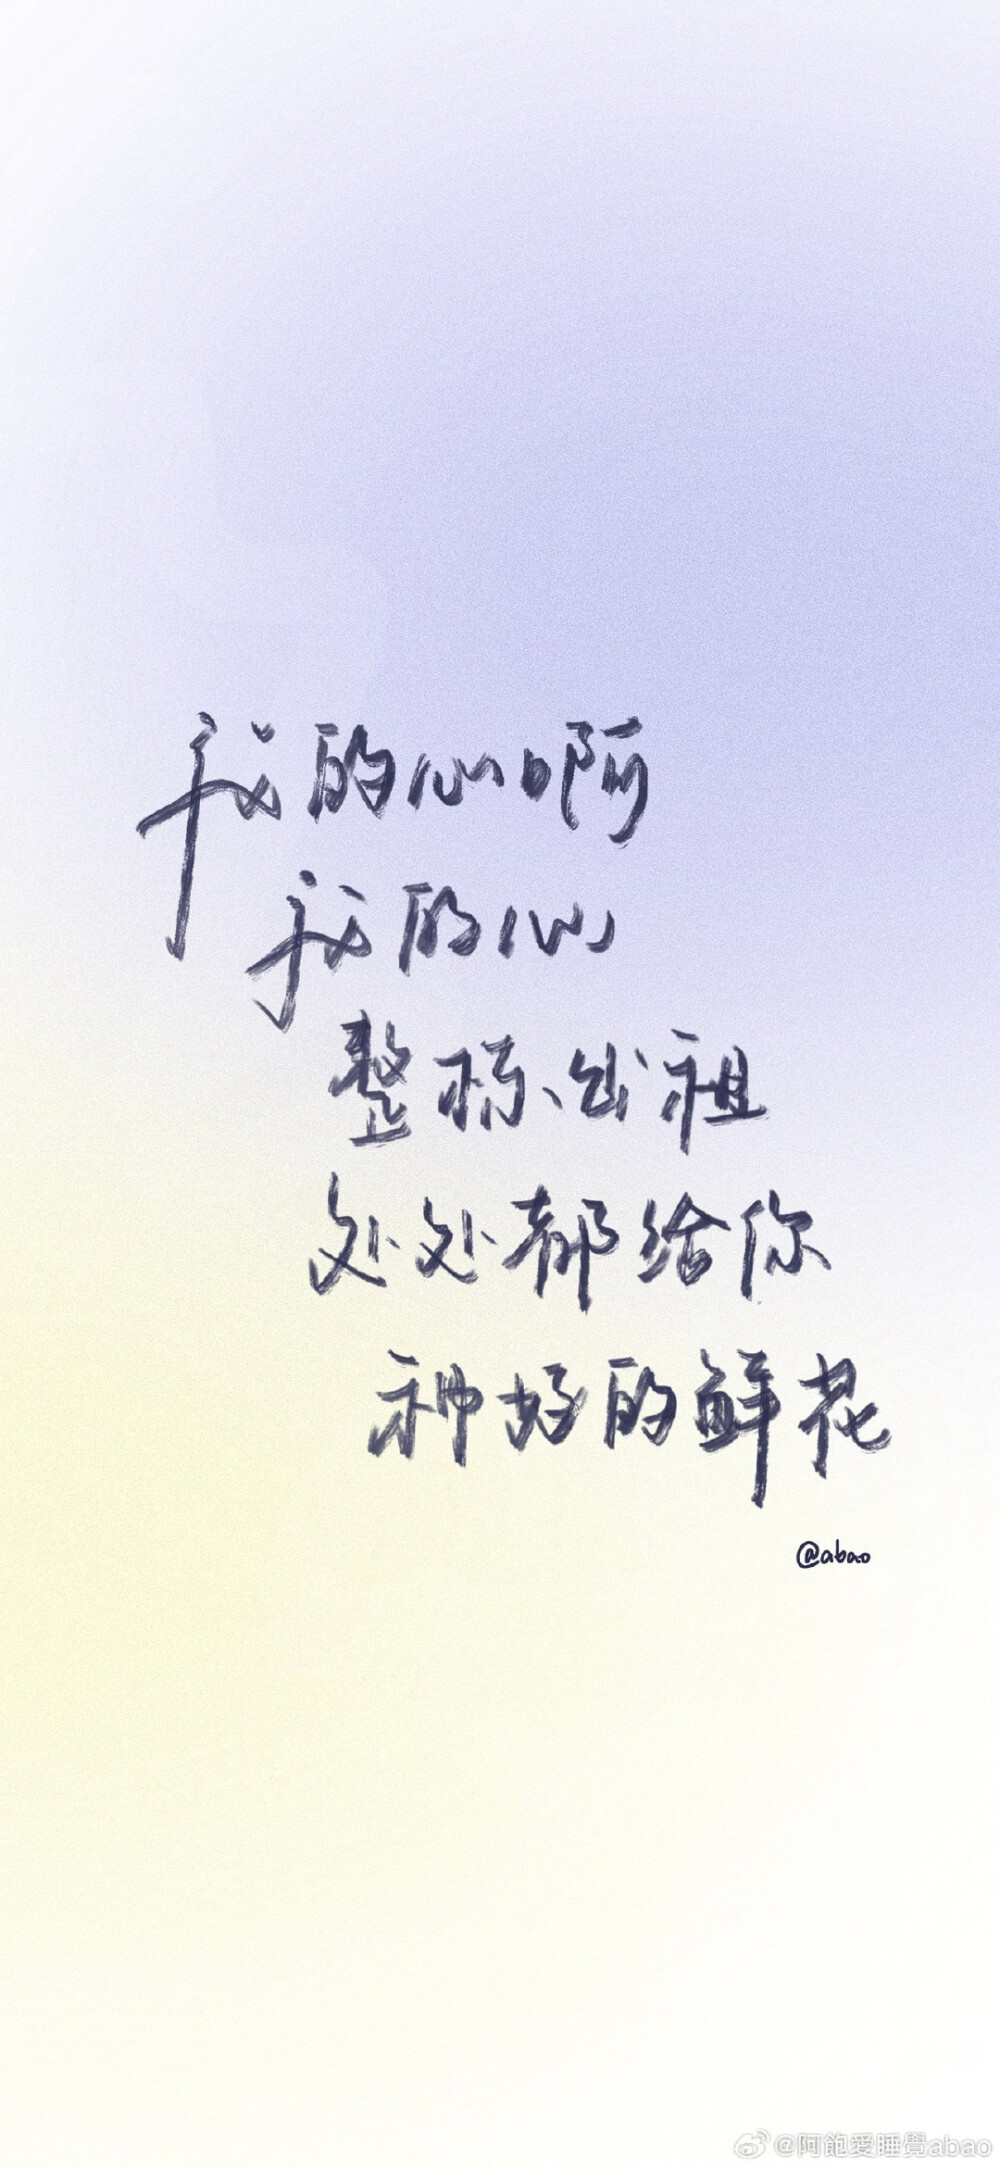 我的心啊
我的心
整栋出租
处处都给你
种好的鲜花
@abao
@阿飽愛睡覺abao